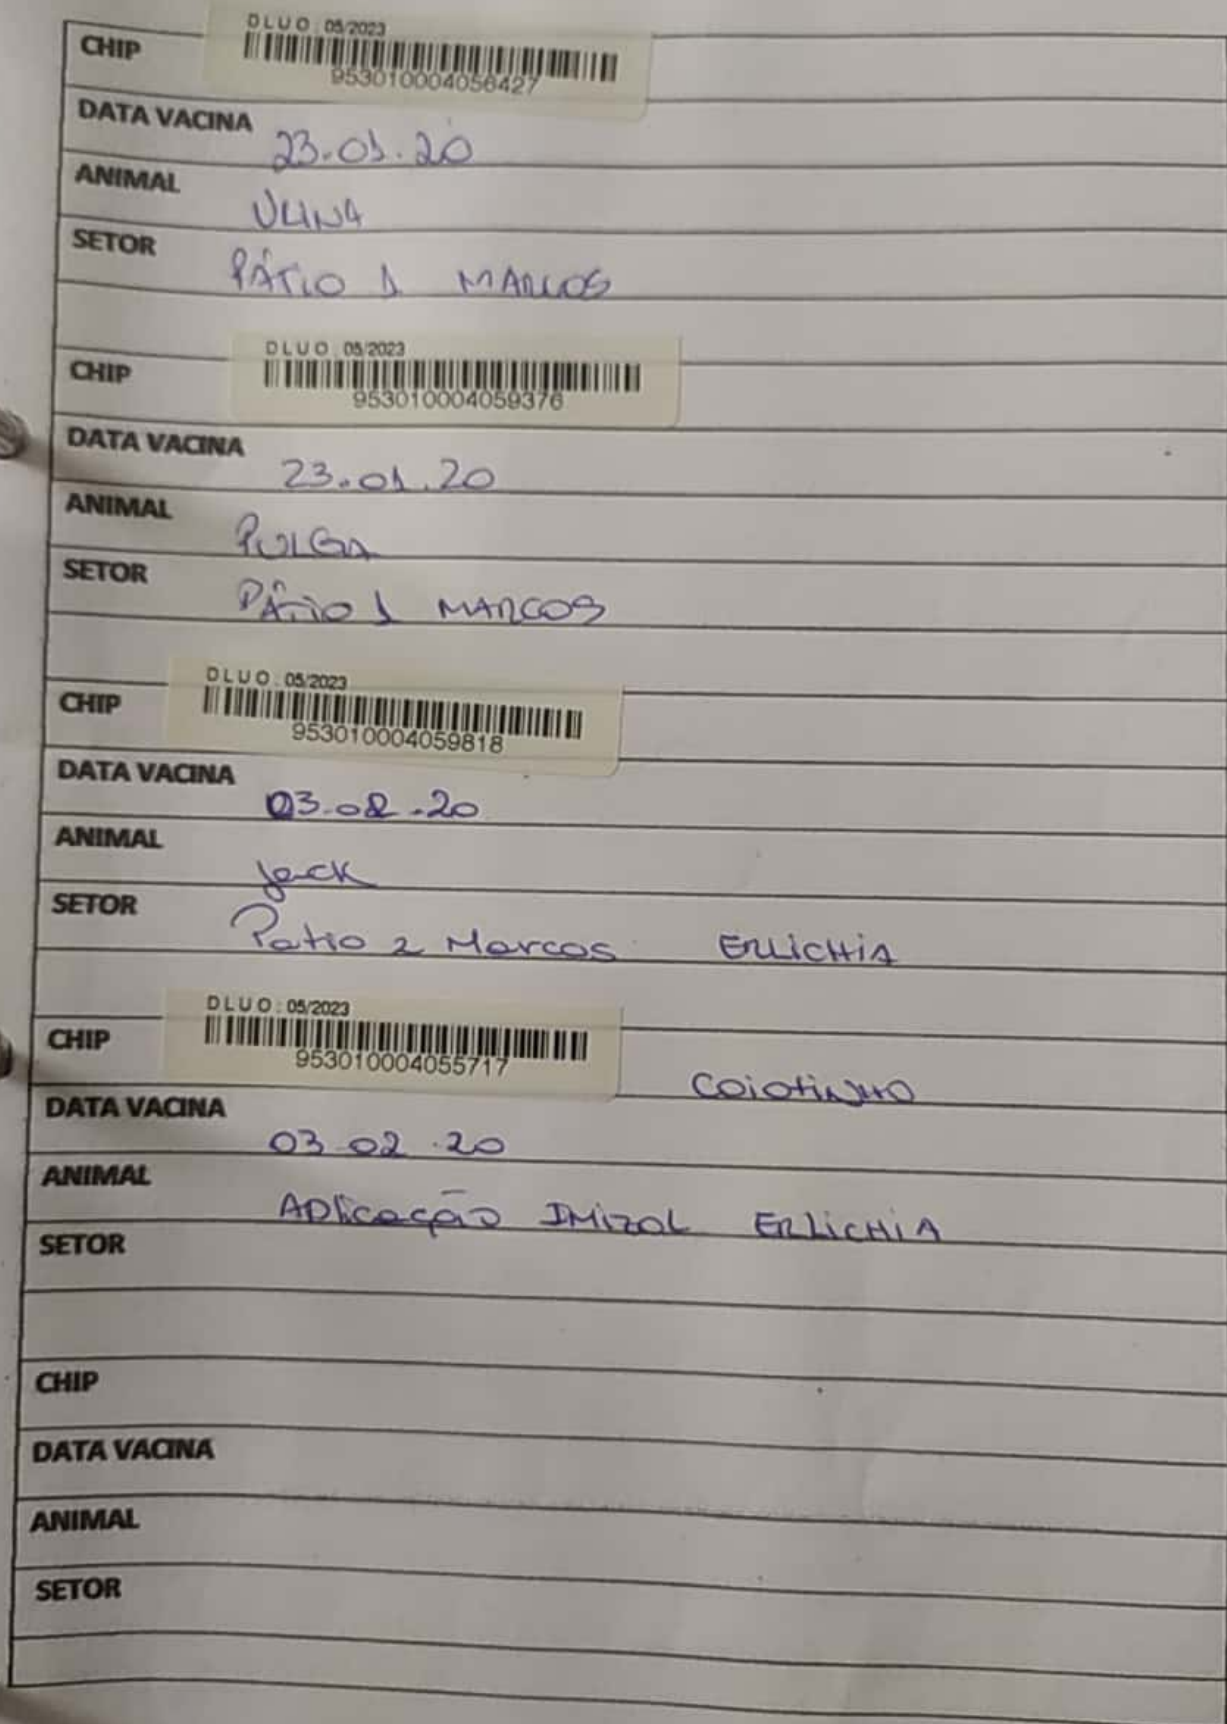 DLUO: 05/2023
CHIP
953010004056427
DATA VACINA 23.01.20
ANIMAL
SETOR PÁTIO 1 MARCOS
DLUO: 05/2023
CHIP
953010004059376
DATA VACINA 23.01.20
ANIMAL PULGA
SETOR PÁTIO 1 MARCOS
DLUO: 05/2023
CHIP
953010004059818
DATA VACINA 03.02.20
ANIMAL Jack
SETOR Patio 2 Marcos ERLICHIA
DLUO: 05/2023
CHIP
953010004055717
COIOTINHO
DATA VACINA 03 02.20
ANIMAL APlicação IMizoL ERLICHIA
SETOR
CHIP
DATA VACINA
ANIMAL
SETOR